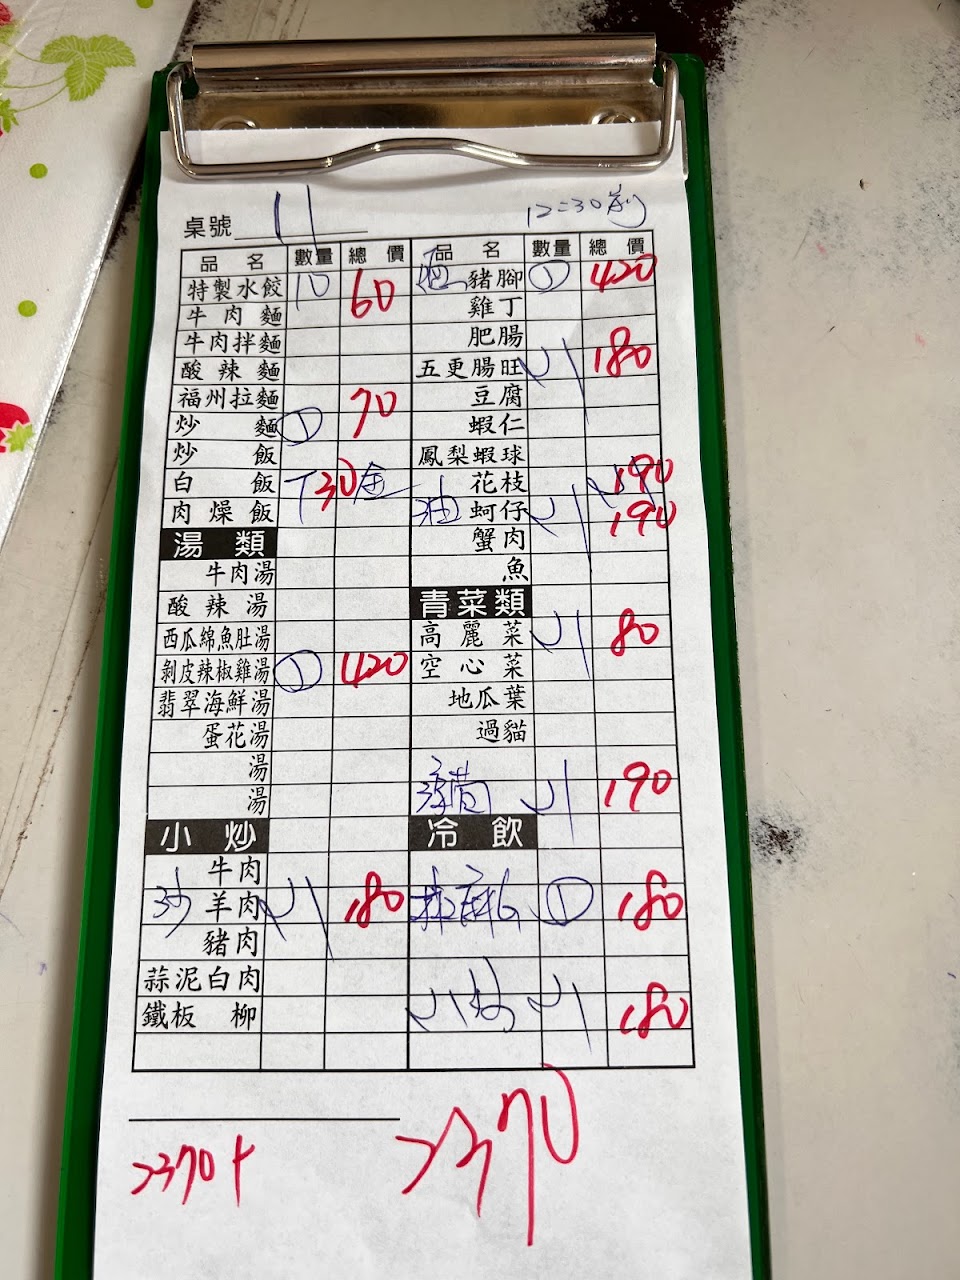 桌號 11 12:30前
品名 數量 總價
特製水餃 10 60
牛肉麵
牛肉拌麵
酸辣麵
福州拉麵 70
炒麵 1
炒飯
白飯 30
肉燥飯
湯類
牛肉湯
酸辣湯
西瓜綿魚肚湯
剝皮辣椒雞湯 1 420
翡翠海鮮湯
蛋花湯
湯
湯
小炒
牛肉
炒羊肉 小 180
豬肉
蒜泥白肉
鐵板柳
品名 數量 總價
豬腳 1 420
雞丁
肥腸
五更腸旺 小 180
豆腐
蝦仁
鳳梨蝦球
花枝 190
油蚵仔 小 190
蟹肉
魚
青菜類
高麗菜 小 80
空心菜
地瓜葉
過貓
小 190
冷飲
1 180
小炒 小 180
2370
2370+